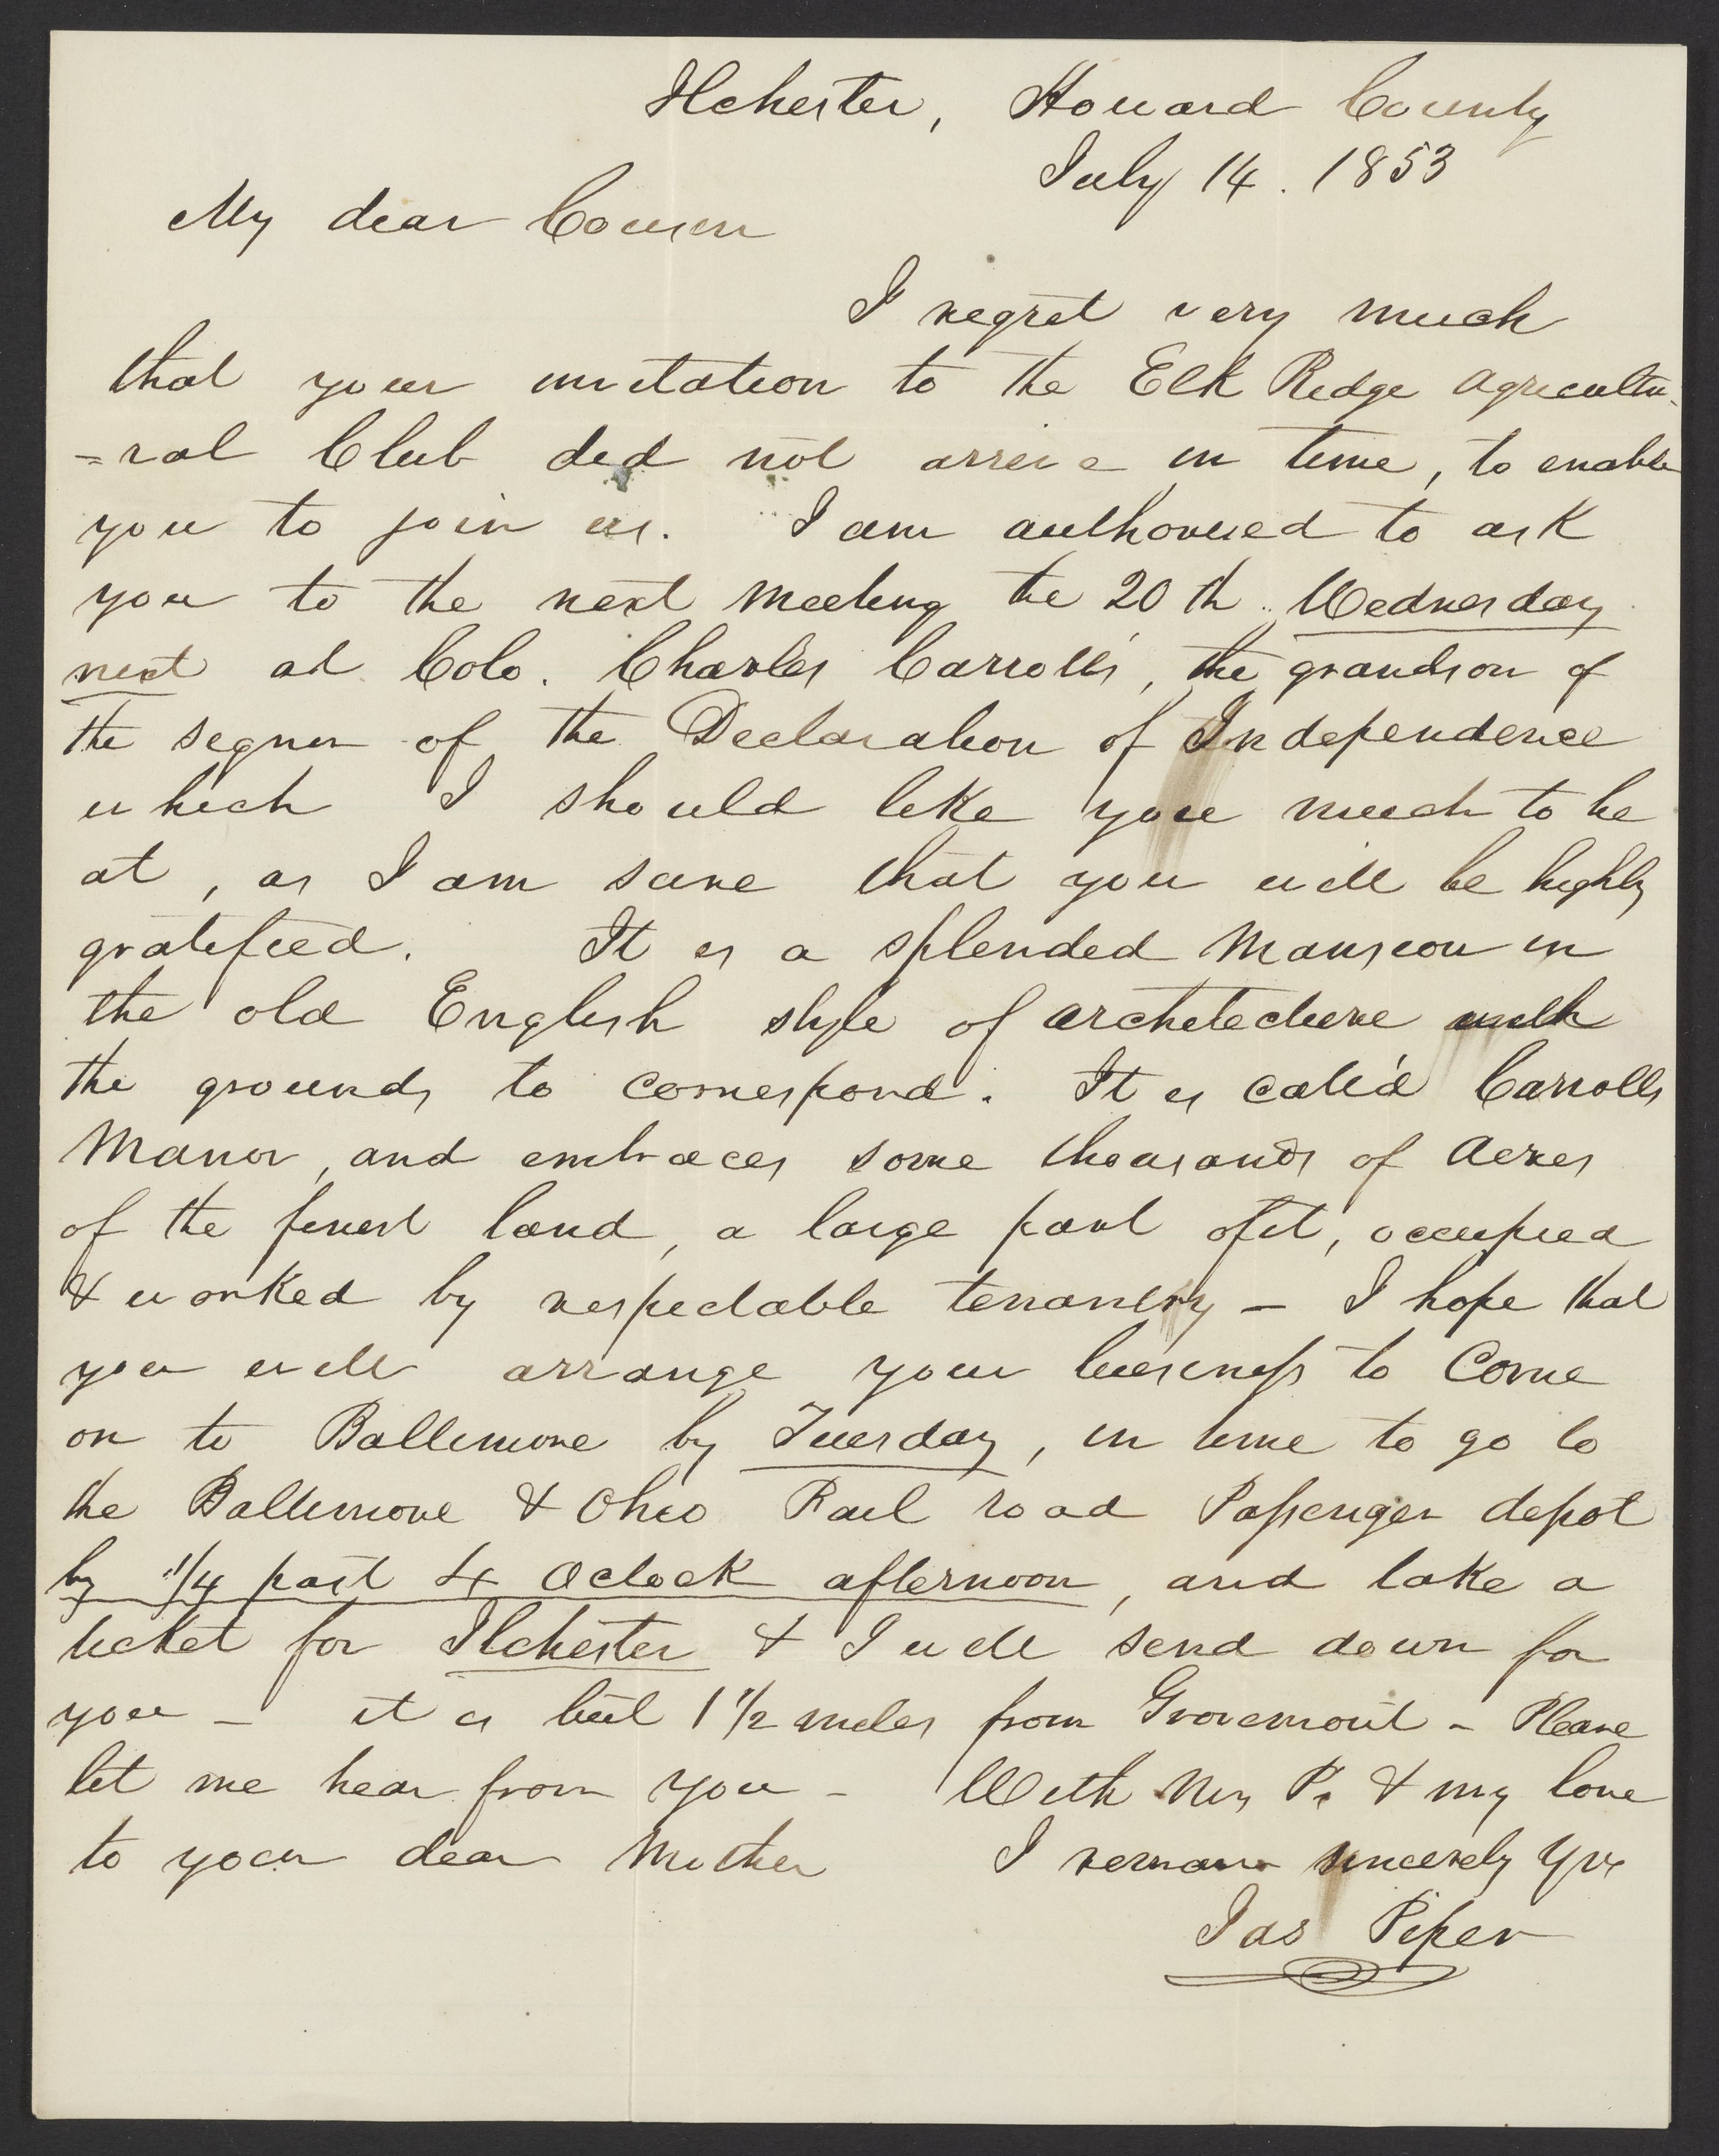 Ilchester, Howard County
July 14. 1853
My dear Cousin
I regret very much
that your invitation to the Elk Ridge Agricultu-
=ral Club did not arrive in time, to enable
you to join us. I am authorised to ask
you to the next meeting the 20th. Wednesday
next at Colo. Charles Carroll's, the grandson of
the signer of the Declaration of Independence
which I should like you much to be
at, as I am sure that you will be highly
gratified. It is a splendid Mansion in
the old English style of architecture with
the grounds to correspond. It is call'd Carrolls
Manor, and embraces some thousands of Acres
of the finest land, a large part of it, occupied
& worked by respectable tenantry - I hope that
you will arrange your business to Come
on to Baltimore by Tuesday, in time to go to
the Baltimore & Ohio Rail road Passenger depot
by 1/4 past 4 Oclock afternoon, and take a
ticket for Ilchester & I will send down for
you - it is but 1 1/2 miles from Grovemont - Please
let me hear from you - With Mrs P. & my love
to your dear Mother I remain sincerely Yrs
Jas Piper